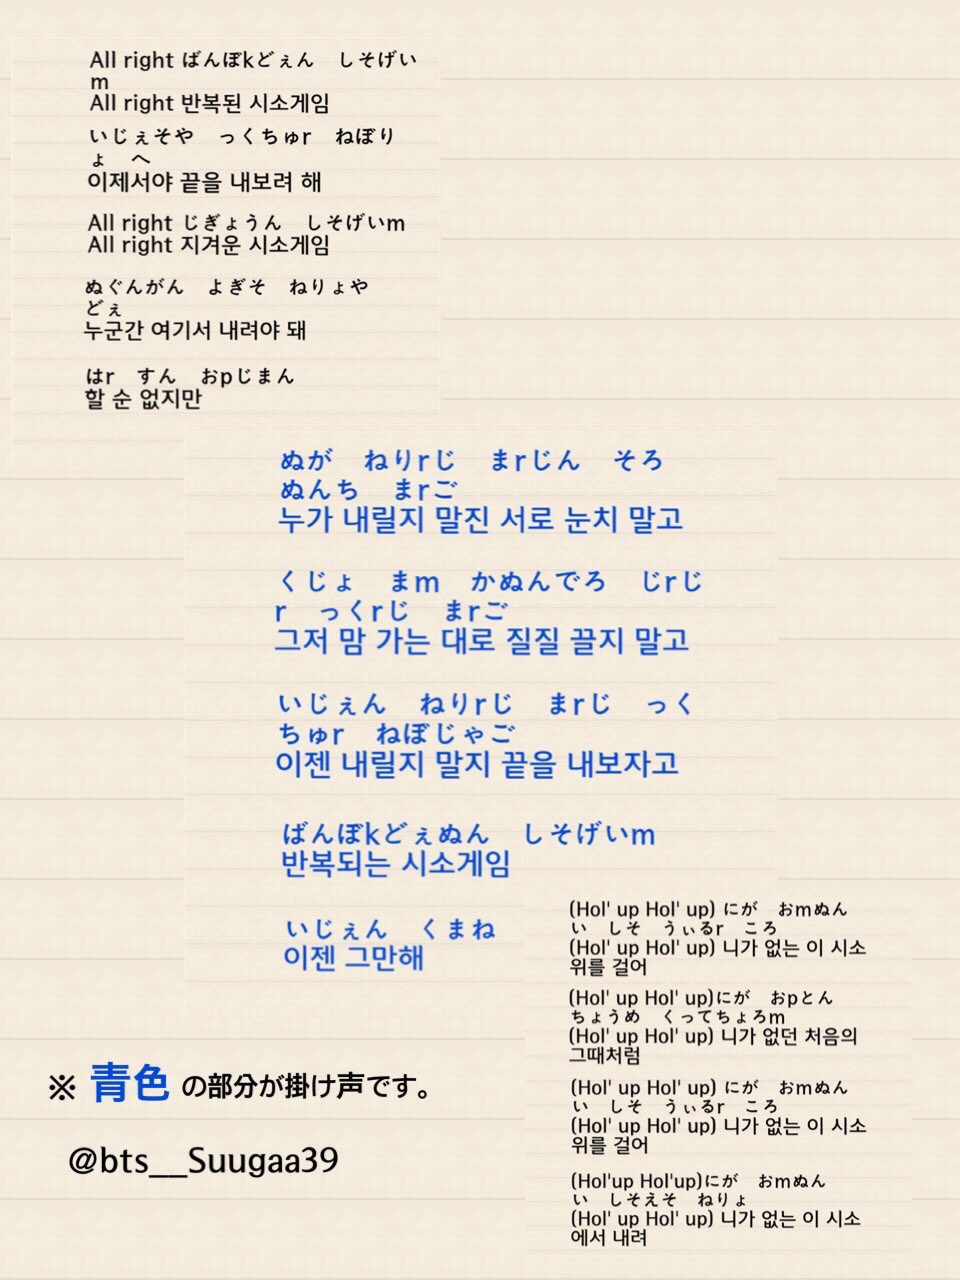 All right ばんぼkどぇん　しそげい
m
All right 반복된 시소게임
いじぇそや　っくちゅr　ねぼり
ょ　へ
이제서야 끝을 내보려 해
All right じぎょうん　しそげいm
All right 지겨운 시소게임
ぬぐんがん　よぎそ　ねりょや
どぇ
누군간 여기서 내려야 돼
はr　すん　おpじまん
할 순 없지만
ぬが　ねりrじ　まrじん　そろ
ぬんち　まrご
누가 내릴지 말진 서로 눈치 말고
くじょ　まm　かぬんでろ　じrじ
r　っくrじ　まrご
그저 맘 가는 대로 질질 끌지 말고
いじぇん　ねりrじ　まrじ　っく
ちゅr　ねぼじゃご
이젠 내릴지 말지 끝을 내보자고
ばんぼkどぇぬん　しそげいm
반복되는 시소게임
いじぇん　くまね
이젠 그만해
(Hol' up Hol' up) にが　おmぬん
い　しそ　うぃるr　ころ
(Hol' up Hol' up) 니가 없는 이 시소
위를 걸어
(Hol' up Hol' up)にが　おpとん
ちょうめ　くってちょろm
(Hol' up Hol' up) 니가 없던 처음의
그때처럼
(Hol' up Hol' up) にが　おmぬん
い　しそ　うぃるr　ころ
(Hol' up Hol' up) 니가 없는 이 시소
위를 걸어
(Hol'up Hol'up)にが　おmぬん
い　しそえそ　ねりょ
(Hol' up Hol' up) 니가 없는 이 시소
에서 내려
※ 青色 の部分が掛け声です。
@bts__Suugaa39